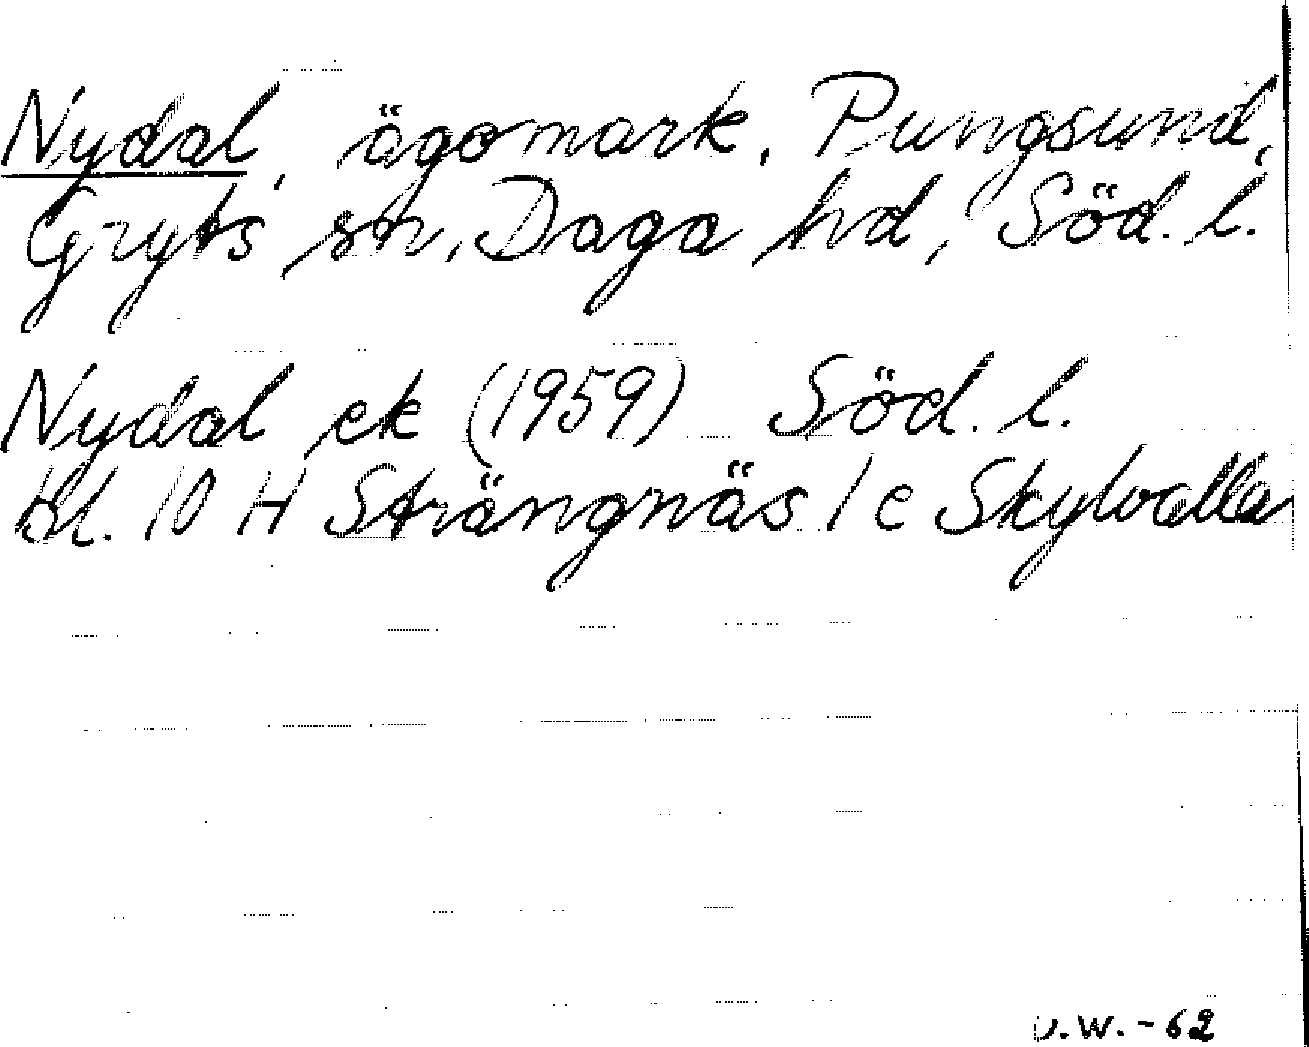 Nydal, ägomark, Pungsund,
Gryts sn, Daga hd, Söd. l.
Nydal ek (1959) Söd. l.
Bl. 10 H Strängnäs 1 c Skylvalla
W. - 62